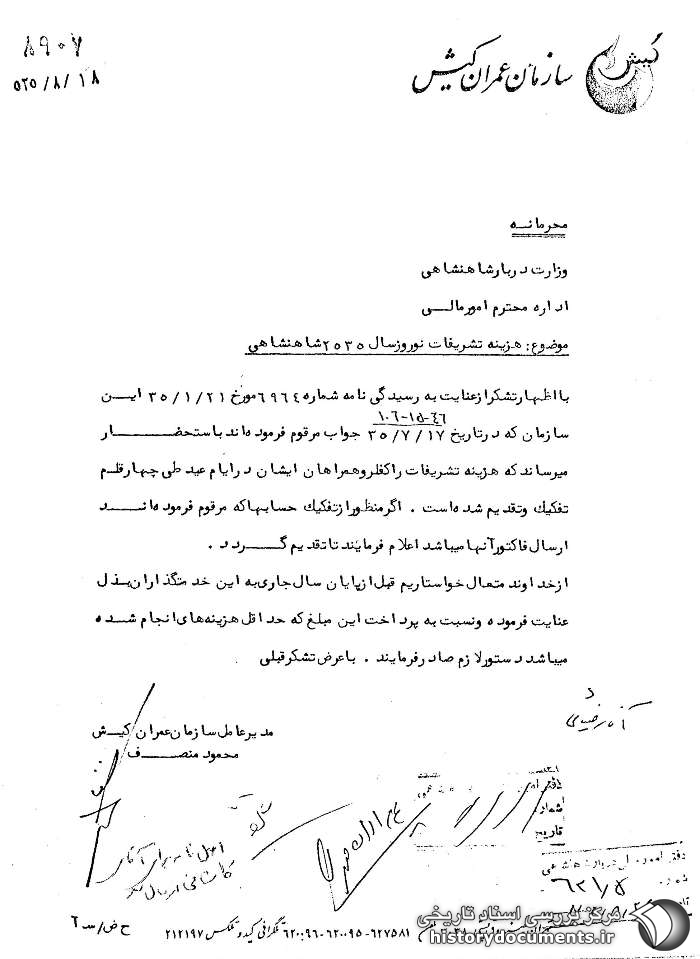 ۸۹۰۷
۵۲۵/۸/۱۸
کیش
سازمان عمران کیش
محرمانه
وزارت دربار شاهنشاهی
اداره محترم امور مالی
موضوع: هزینه تشریفات نوروز سال ۲۵۳۵ شاهنشاهی
با اظهار تشکر از عنایت به رسیدگی نامه شماره ۶۹۶۴ مورخ ۳۵/۱/۲۱ این
۱۰۶-۱۵-۴۶
سازمان که در تاریخ ۳۵/۷/۱۷ جواب مرقوم فرموده‌اند باستحضار
میرساند که هزینه تشریفات راکفلر و همراهان ایشان در ایام عید طی چهار قلم
تفکیک و تقدیم شده است . اگر منظور از تفکیک حسابها که مرقوم فرموده‌اند
ارسال فاکتور آنها میباشد اعلام فرمایند تا تقدیم گردد .
از خداوند متعال خواستاریم قبل از پایان سال جاری به این خدمتگذاران بذل
عنایت فرموده و نسبت به پرداخت این مبلغ که حداقل هزینه‌های انجام شده
میباشد دستور لازم صادر فرمایند . با عرض تشکر قبلی
مدیر عامل سازمان عمران کیش
محمود منصف
اصل نامه برای آقای
کاشانی ارسال
شماره
تاریخ
۶۲۱/۵
ح ض/س ۶
۶۲۷۵۸۱-۶۲۰۰۹۵-۶۲۰۰۹۶ تلگرافی کیدو تلکس ۲۱۲۱۹۷
مرکز بررسی اسناد تاریخی
historydocuments.ir